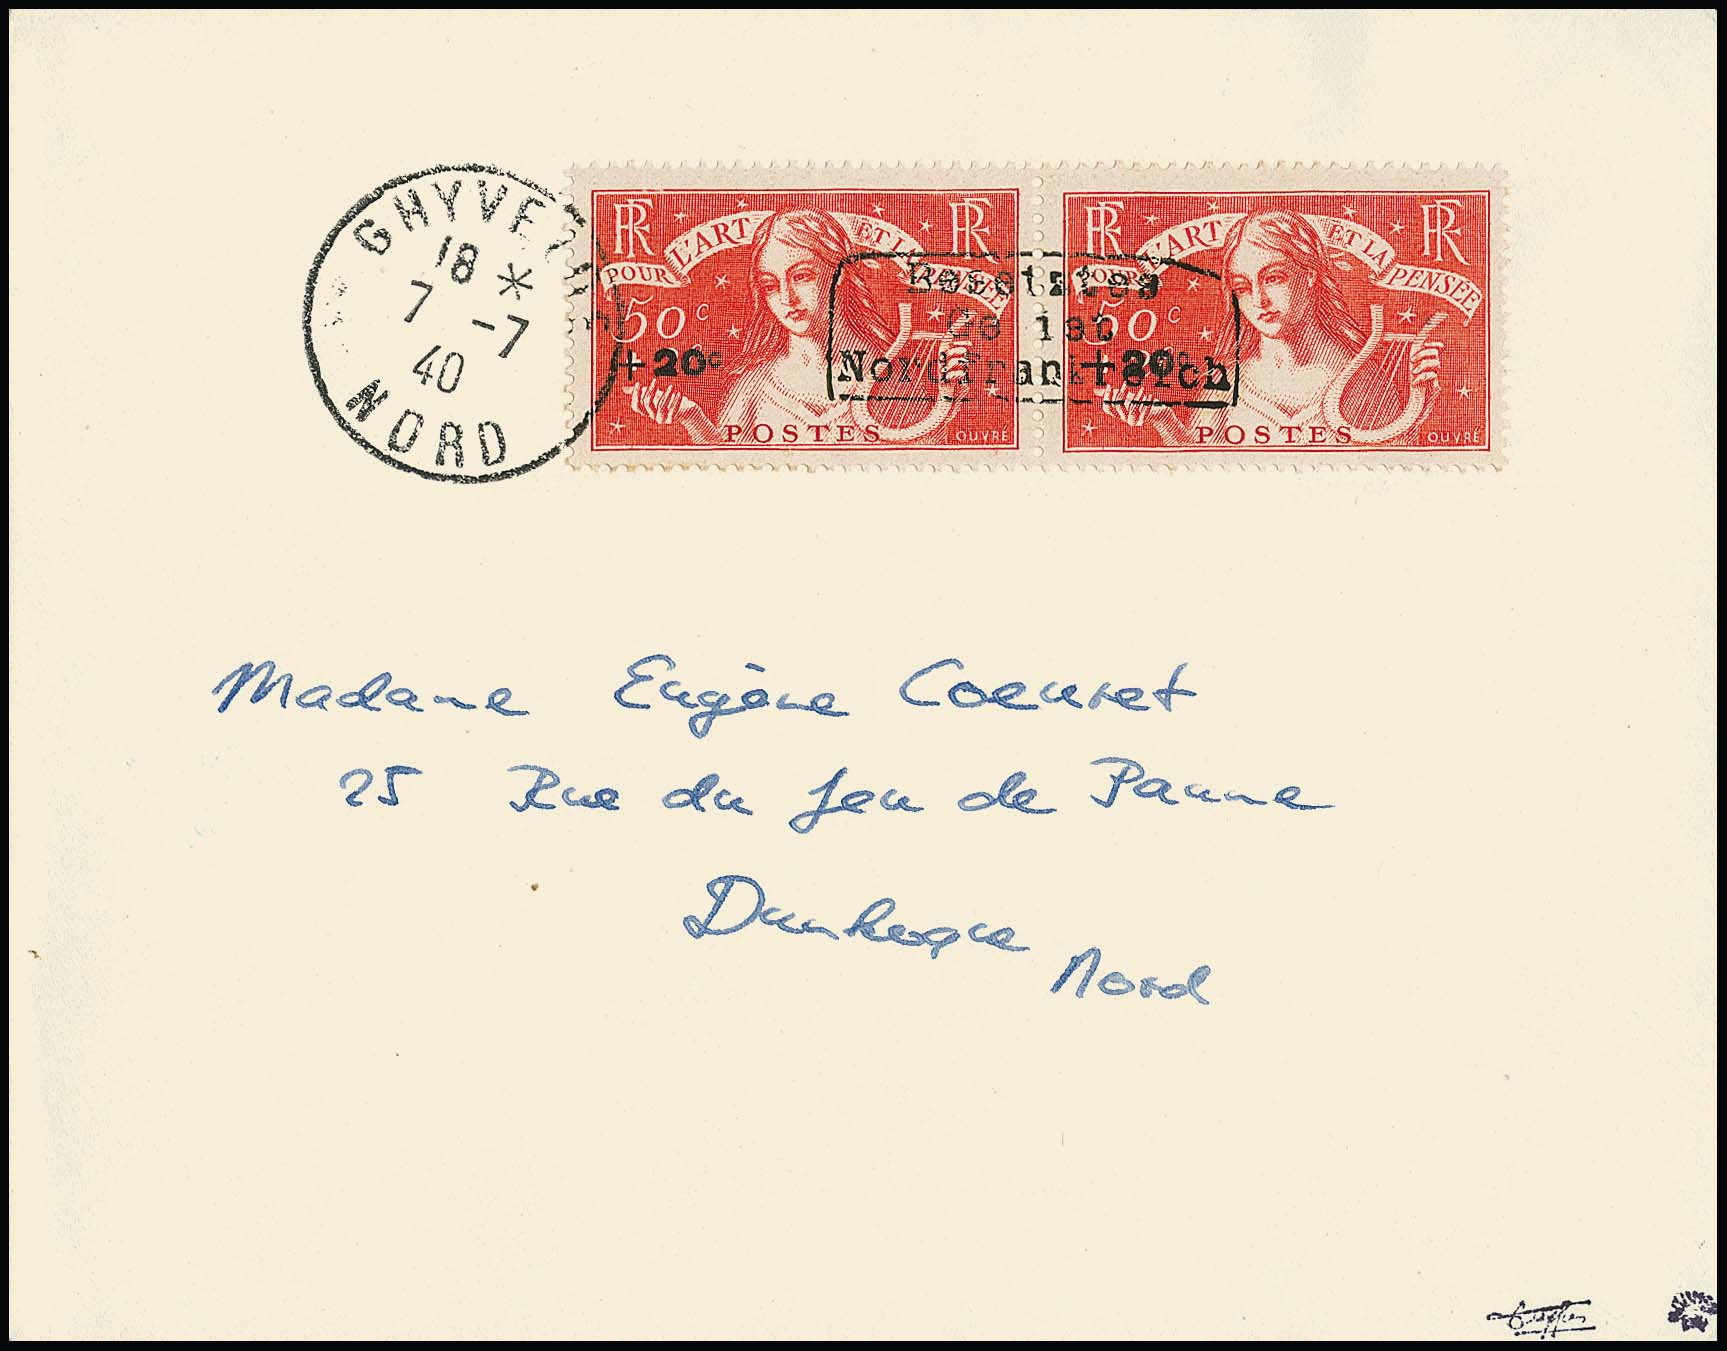 GHYVELDE
18 *
7 -7
40
NORD
RF RF
POUR L'ART ET LA PENSÉE
50c
+20c
POSTES
OUVRÉ
RF RF
POUR L'ART ET LA PENSÉE
50c
+20c
POSTES
OUVRÉ
Besetztes
Gebiet
Nordfrankreich
Madame Eugène Coeuret
25 Rue du Jeu de Paume
Dunkerque
Nord